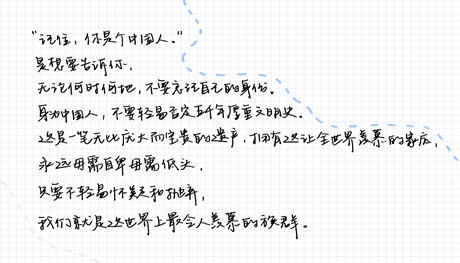 “记住，你是个中国人。”
是想要告诉你，
无论何时何地，不要忘记自己的身份。
身为中国人，不要轻易否定五千年厚重文明史。
这是一笔无比庞大而宝贵的遗产，拥有这让全世界羡慕的家底，
永远毋需自卑毋需低头，
只要不轻易怀疑和抛弃，
我们就是这世界上最令人羡慕的族群。